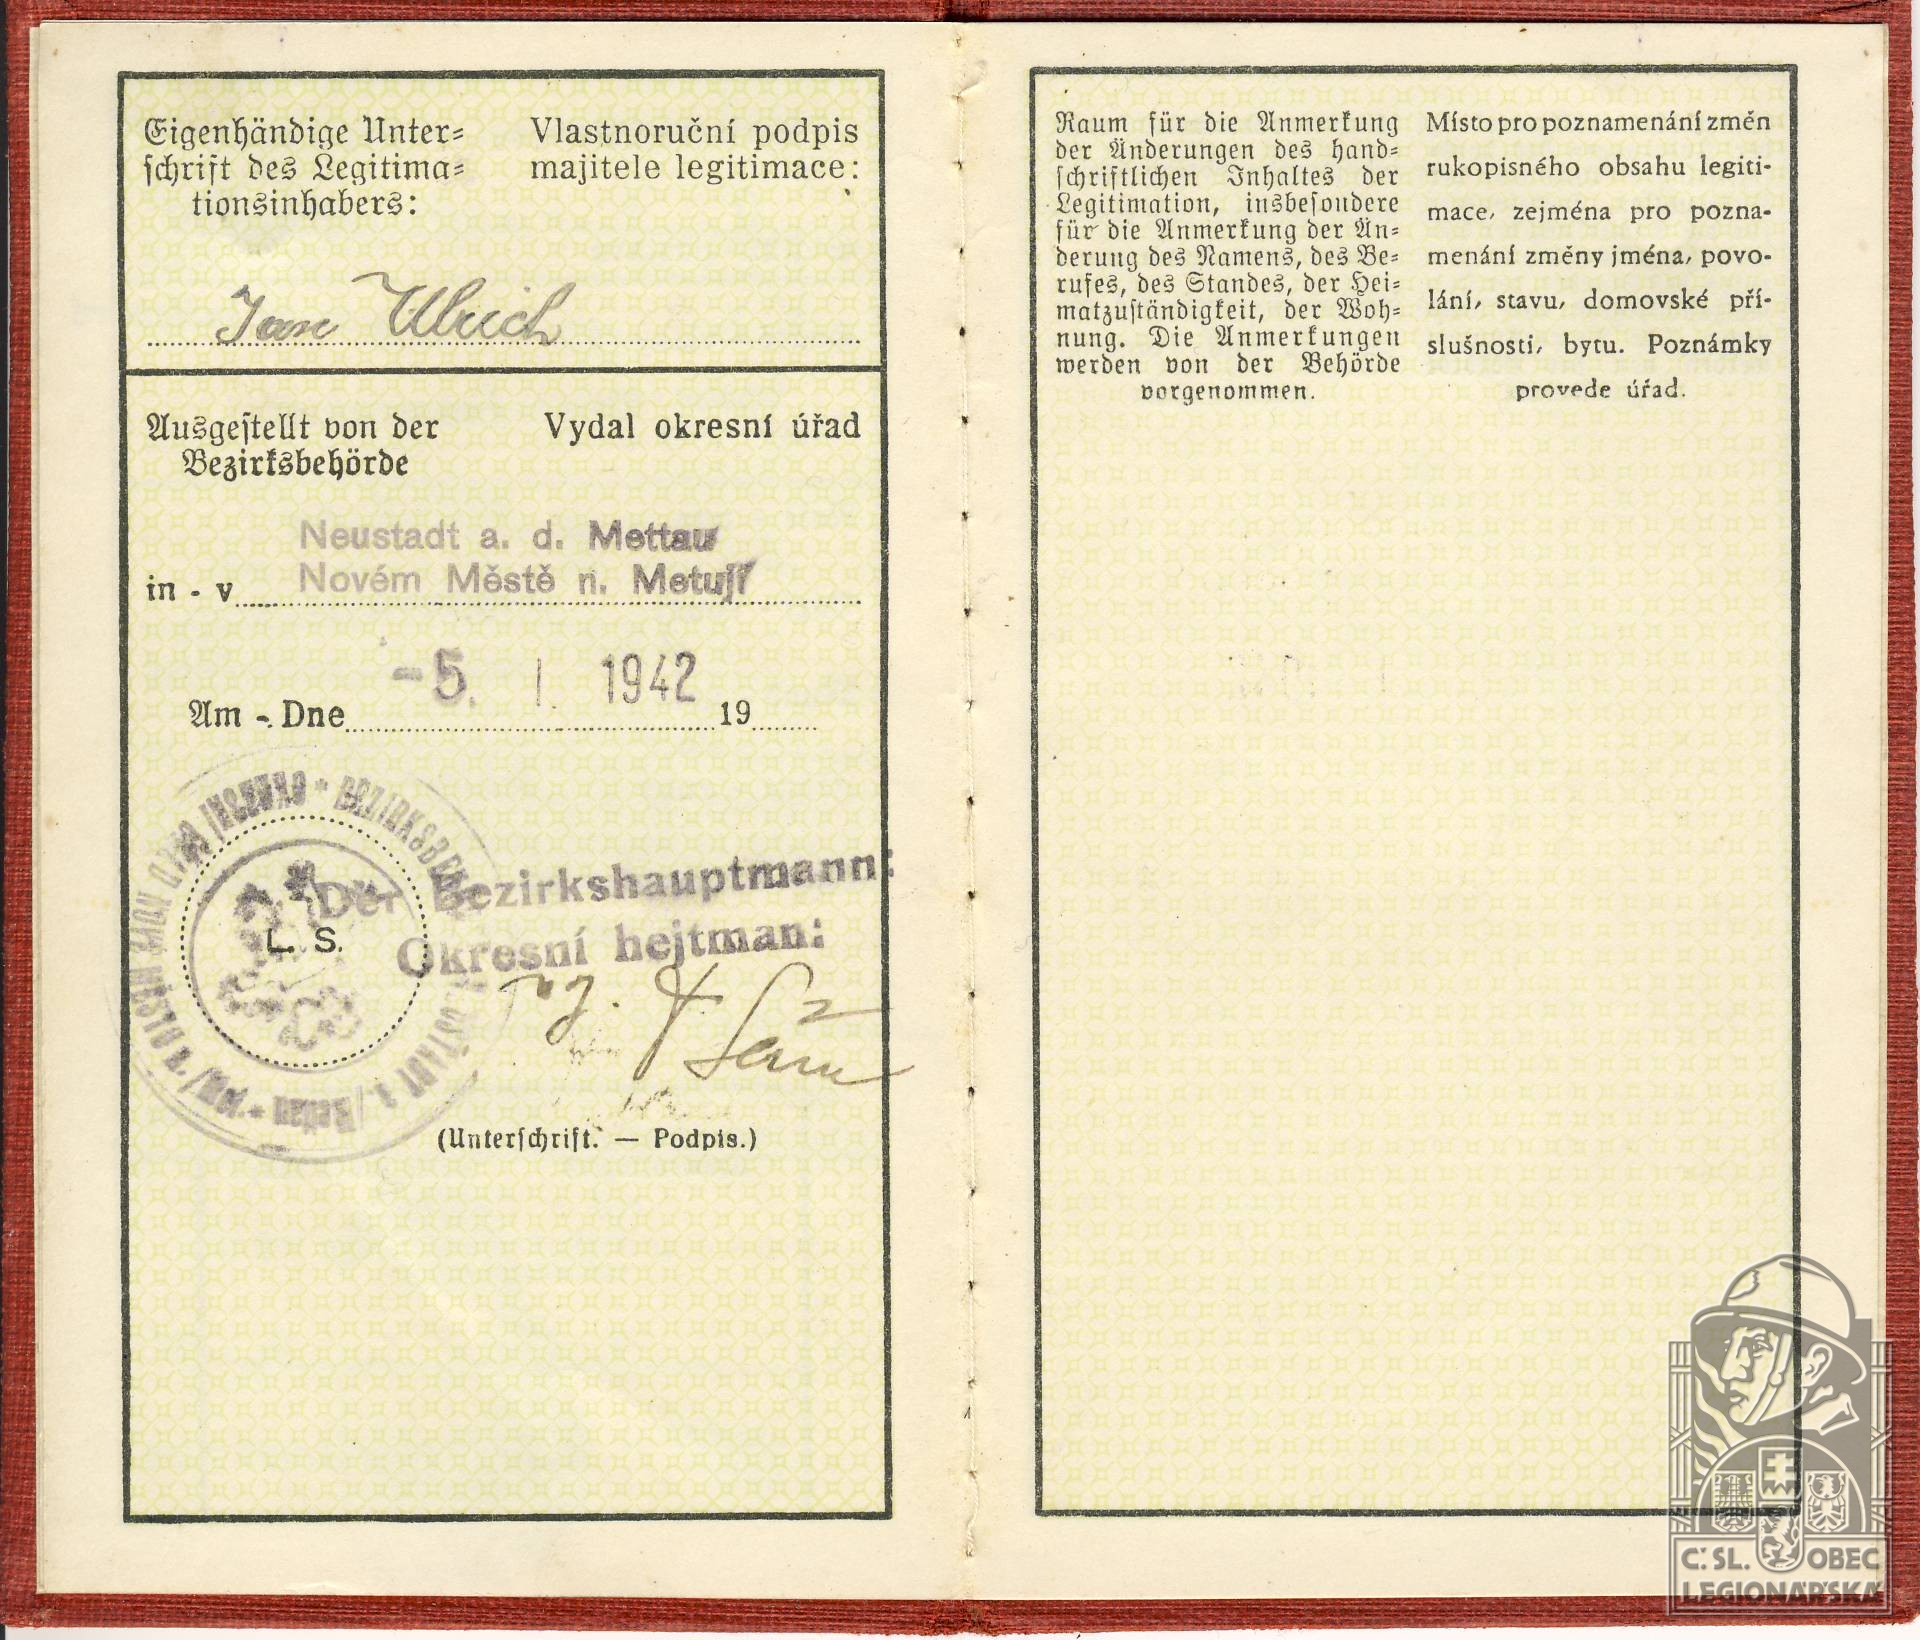 Eigenhändige Unter=
schrift des Legitima=
tionsinhabers:
Vlastnoruční podpis
majitele legitimace:
Jan Ulrich
Ausgestellt von der
Bezirksbehörde
Vydal okresní úřad
Neustadt a. d. Mettau
in - v Novém Městě n. Metují
Am - Dne -5. I. 1942 19
Der Bezirkshauptmann:
L. S.
Okresní hejtman:
(Unterschrift. — Podpis.)
Raum für die Anmerkung
der Änderungen des hand=
schriftlichen Inhaltes der
Legitimation, insbesondere
für die Anmerkung der Än=
derung des Namens, des Be=
rufes, des Standes, der Hei=
matzuständigkeit, der Woh=
nung. Die Anmerkungen
werden von der Behörde
vorgenommen.
Místo pro poznamenání změn
rukopisného obsahu legiti-
mace, zejména pro pozna-
menání změny jména, povo-
lání, stavu, domovské pří-
slušnosti, bytu. Poznámky
provede úřad.
Č. SL. OBEC
LEGIONÁŘSKÁ